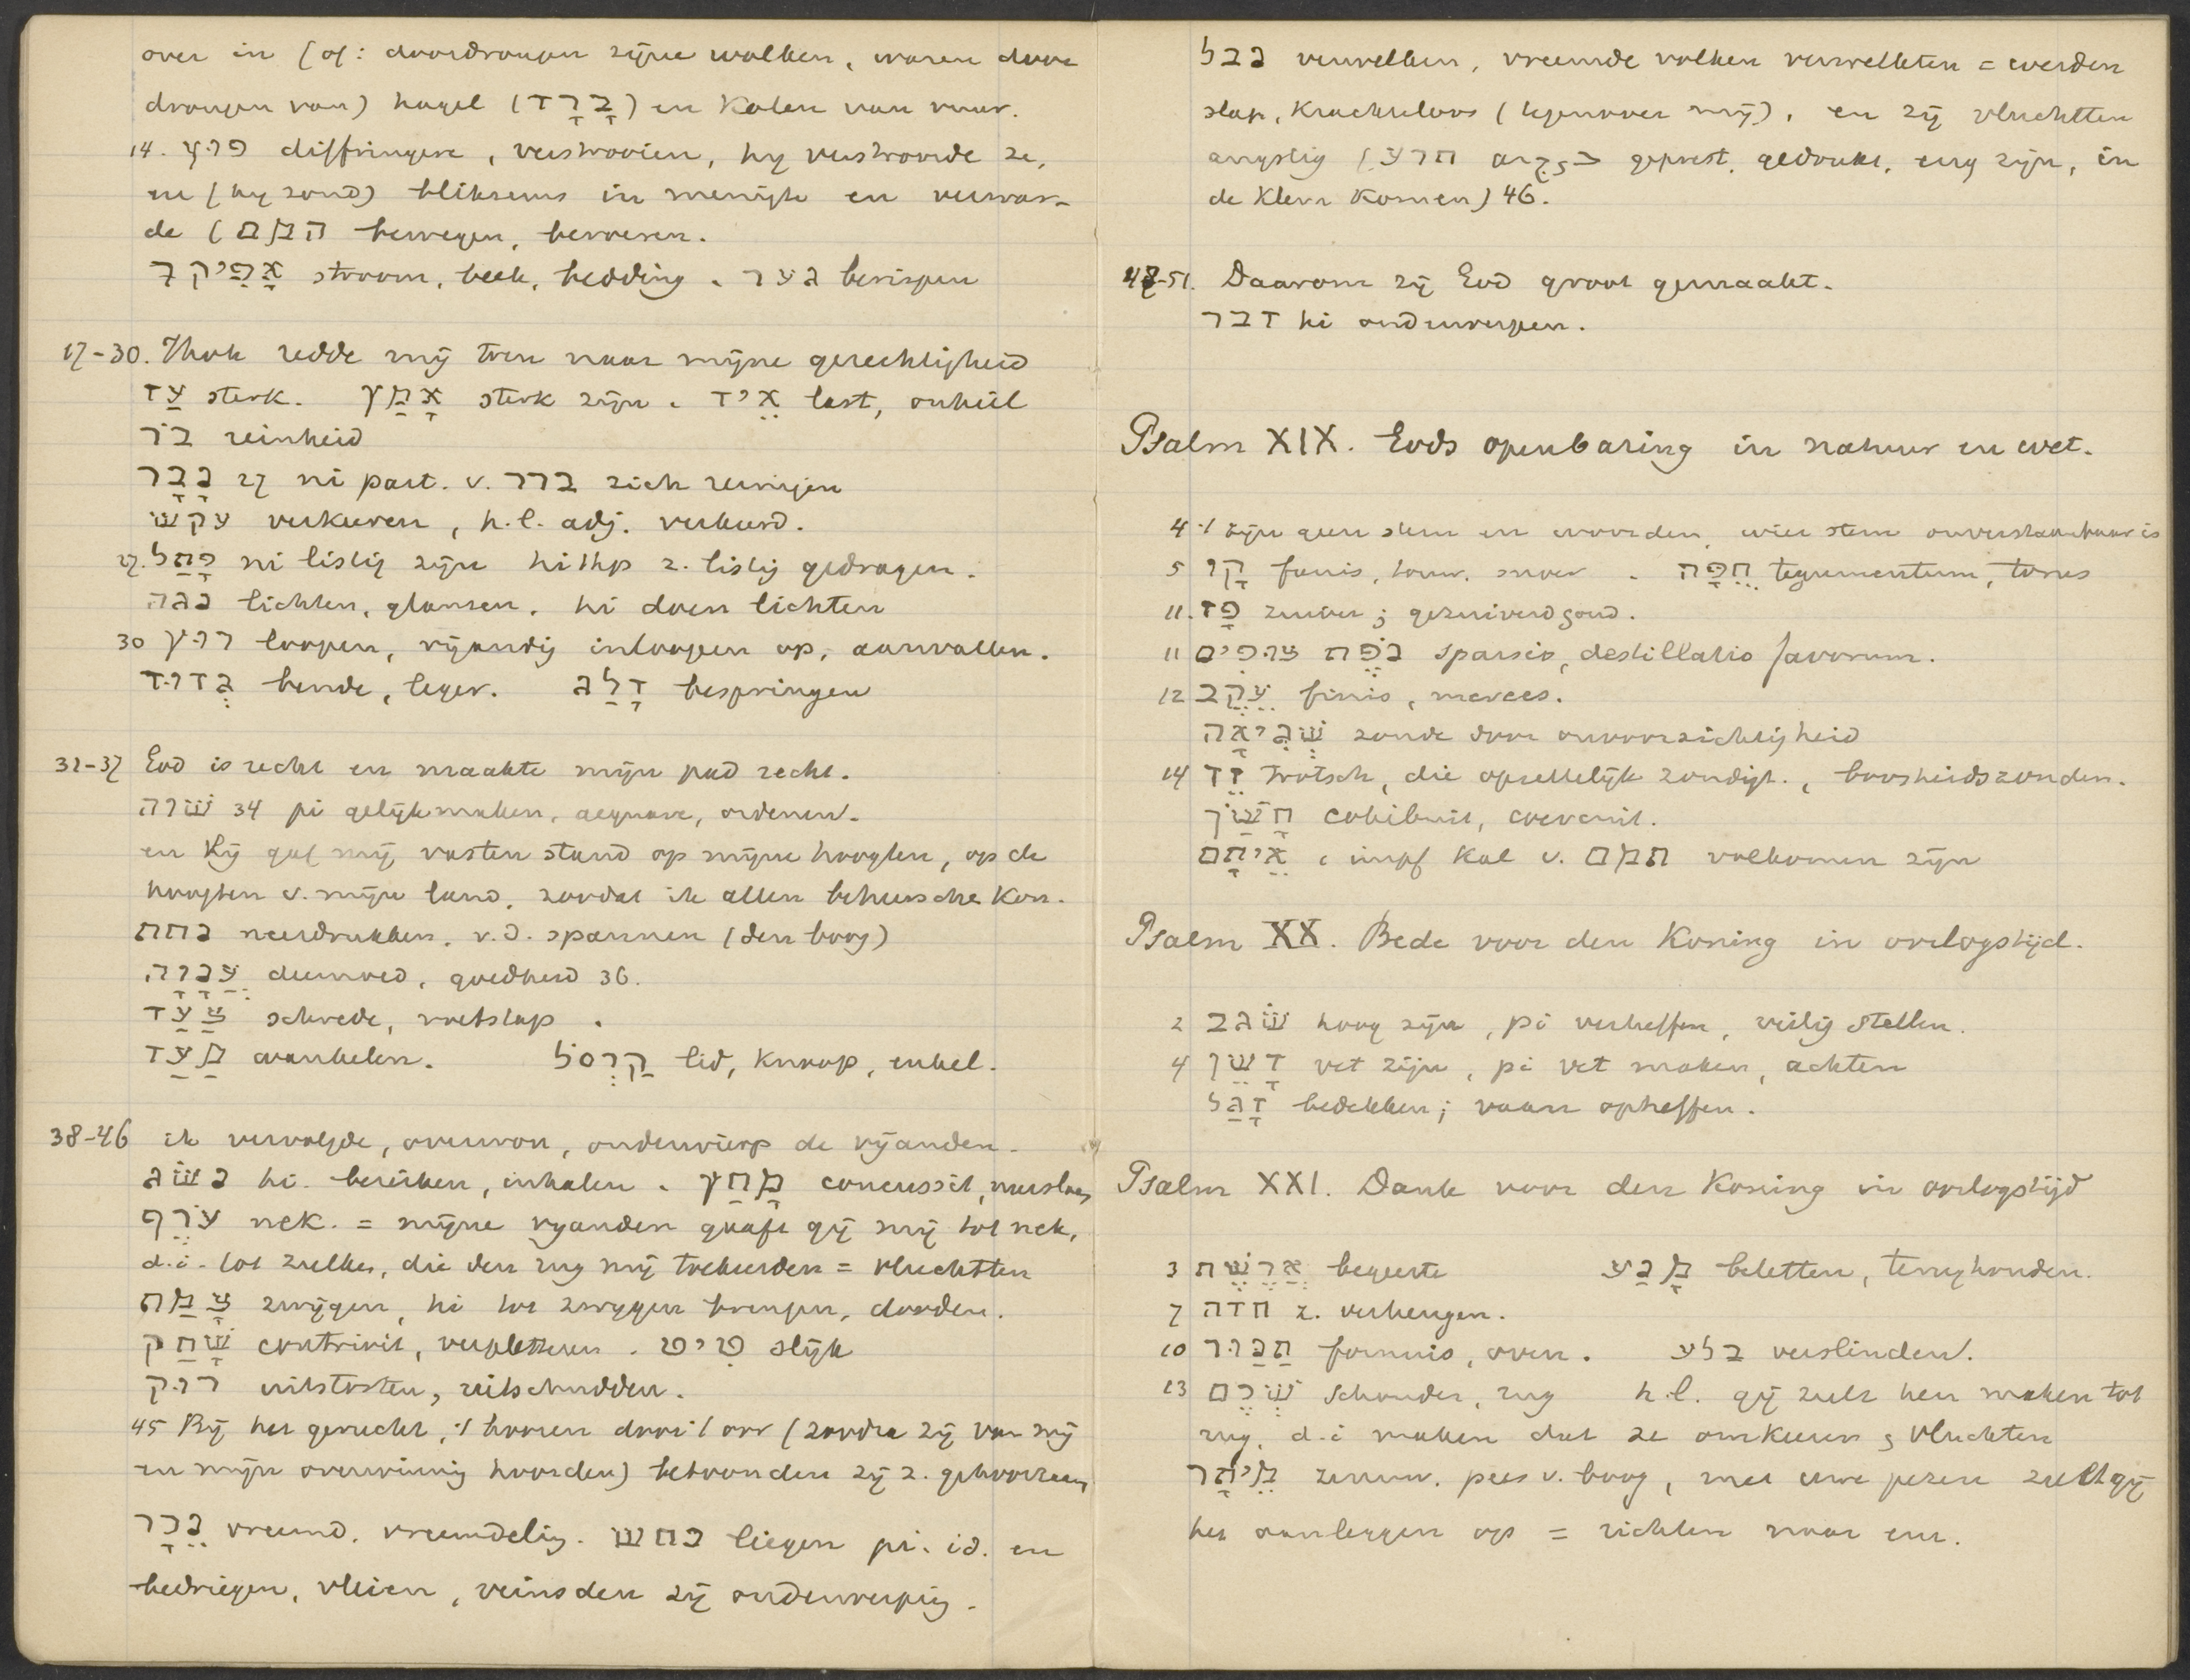 over in (of: doordrongen zijne wolken, waren door
drongen van) hagel (בָּרָד) en Kolen van vuur.
14. פוץ diffringere, verstrooien, hij verstrooide ze,
en (hij zond) bliksems in menigte en verwar-
de (המם bewegen, beroeren.
אָפִיק stroom, beek, bedding. גער berispen
17-30. Jhvh redde mij toen naar mijne gerechtigheid
עַז sterk. אָמַץ sterk zijn. אֵיד last, onheil
בֹּר reinheid
נָבָר 27 ni part. v. ברר zich reinigen
עקש verkeeren, h.l. adj. verkeerd.
27. פָּתַל ni listig zijn hithp z. listig gedragen.
נגה lichten, glansen. hi doen lichten
30 רוץ loopen, vijandig inloopen op, aanvallen.
גְּדוּד bende, leger. דָּלַג bespringen
31-37 God is recht en maakte mijn pad recht.
שוה 34 pi gelijkmaken, aequare, ordenen.
en Hij gaf mij vasten stand op mijne hoogten, op de
hoogten v. mijn land, zoodat ik allen beheerschen kon.
נחת neerdrukken, v.d. spannen (den boog)
עֲנָוָה deemoed, goedheid 36.
צַעַד schrede, voetstap.
מָעַד wankelen. קַרְסֹל lid, knoop, enkel.
38-46 ik vervolgde, overwon, onderwierp de vijanden.
נשׂג hi. bereiken, inhalen. מָחַץ concussit, neerslaan,
עֹרֶף nek. = mijne vijanden gaaft gij mij tot nek,
d.i. tot zulken, die den rug mij toekeerden = vluchtten
צָמַת zwijgen, hi tot zwijgen brengen, dooden.
שָׁחַק contrivit, verpletteren. טִיט slijk
רוק uitstorten, uitschudden.
45 Bij het gerucht, 't hooren door 't oor (zoodra zij van mij
en mijn overwinning hoorden) betoonden zij z. gehoorzaam,
נֵכָר vreemd, vreemdeling. כחש liegen pi. id. en
bedriegen, vleien, veinsden zij onderwerping.
נבל verwelken, vreemde volken verwelkten = werden
slap, krachteloos (tegenover mij), en zij vluchtten
angstig (חרג geprest, gedrukt, eng zijn, in
de klem komen) 46.
47-51. Daarom zij God groot gemaakt.
דבר hi onderwerpen.
Psalm XIX. Gods openbaring in natuur en wet.
4 't zijn geen stem en woorden, wier stem onverstaanbaar is
5 קָו funis, touw, snoer. חֻפָּה tegumentum, torus
11. פַּז zuiver; gezuiverd goud.
11 נֹפֶת צוּפִים sparsio, destillatio favorum.
12 עֵקֶב finis, merces.
שְׁגִיאָה zonde door onvoorzichtigheid
14 זֵד trotsch, die opzettelijk zondigt., boosheidszonden.
חָשַׂךְ cohibuit, coercuit.
אֵיתָם, impf Kal v. תמם volkomen zijn
Psalm XX. Bede voor den Koning in oorlogstijd.
2 שׂגב hoog zijn, pi verheffen, veilig stellen.
4 דָּשֵׁן vet zijn, pi vet maken, achten
דָּגַל bedekken; vaan opheffen.
Psalm XXI. Dank voor den Koning in oorlogstijd
3 אֲרֶשֶׁת begeerte מָנַע beletten, terughouden.
7 חדה z. verheugen.
10 תַּנּוּר fornus, oven. בלע verslinden.
13 שְׁכֶם schouder, rug h.l. gij zult hen maken tot
rug, d.i maken dat ze omkeeren & vluchten
מֵיתָר zenuw, pees v. boog, met uwe pezen zult gij
het aanleggen op = richten naar hen.